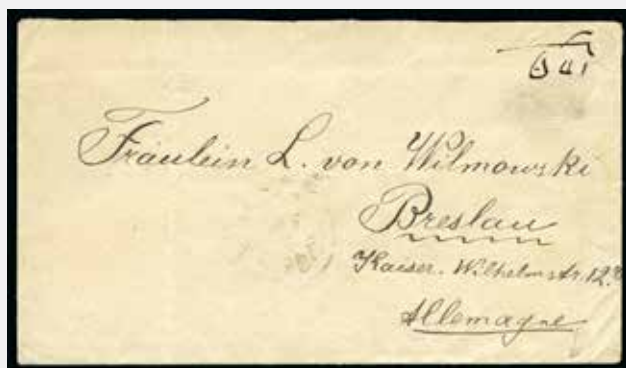 Fräulein L. von Wilmowski
Breslau
Kaiser-Wilhelmstr. 12
Allemagne